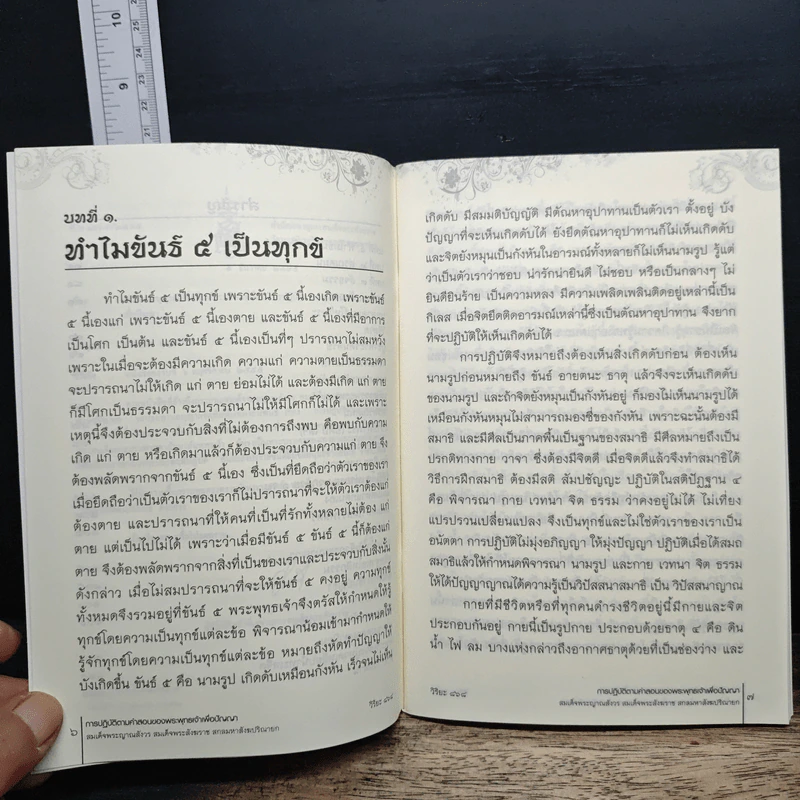 บทที่ ๑.
ทำไมขันธ์ ๕ เป็นทุกข์
ทำไมขันธ์ ๕ เป็นทุกข์ เพราะขันธ์ ๕ นี้เองเกิด เพราะขันธ์
๕ นี้เองแก่ เพราะขันธ์ ๕ นี้เองตาย และขันธ์ ๕ นี้เองที่มีอาการ
เป็นโศก เป็นต้น และขันธ์ ๕ นี้เองเป็นที่ๆ ปรารถนาไม่สมหวัง
เพราะในเมื่อจะต้องมีความเกิด ความแก่ ความตายเป็นธรรมดา
จะปรารถนาไม่ให้เกิด แก่ ตาย ย่อมไม่ได้ และต้องมีเกิด แก่ ตาย
ก็มีโศกเป็นธรรมดา จะปรารถนาไม่ให้มีโศกก็ไม่ได้ และเพราะ
เหตุนี้จึงต้องประจวบกับสิ่งที่ไม่ต้องการถึงพบ คือพบกับความ
เกิด แก่ ตาย หรือเกิดมาแล้วก็ต้องประจวบกับความแก่ ตาย จึง
ต้องพลัดพรากจากขันธ์ ๕ นี้เอง ซึ่งเป็นที่ยึดถือว่าตัวเราของเรา
เมื่อยึดถือว่าเป็นตัวเราของเราก็ไม่ปรารถนาที่จะให้ตัวเราต้องแก่
ต้องตาย และปรารถนาที่ให้คนที่เป็นที่รักทั้งหลายไม่ต้อง แก่
ตาย แต่เป็นไปไม่ได้ เพราะว่าเมื่อมีขันธ์ ๕ ขันธ์ ๕ นี้ก็ต้องแก่
ตาย จึงต้องพลัดพรากจากสิ่งที่เป็นของเราและประจวบกับสิ่งนั้น
ดังกล่าว เมื่อไม่สมปรารถนาที่จะให้ขันธ์ ๕ คงอยู่ ความทุกข์
ทั้งหมดจึงรวมอยู่ที่ขันธ์ ๕ พระพุทธเจ้าจึงตรัสให้กำหนดให้รู้
ทุกข์โดยความเป็นทุกข์แต่ละข้อ พิจารณาน้อมเข้ามากำหนดให้
รู้จักทุกข์โดยความเป็นทุกข์แต่ละข้อ หมายถึงหัดทำปัญญาให้
บังเกิดขึ้น ขันธ์ ๕ คือ นามรูป เกิดดับเหมือนกังหัน เร็วจนไม่เห็น
วิริยะ ๘๖๘
๖
การปฏิบัติตามคำสอนของพระพุทธเจ้าเพื่อปัญญา
สมเด็จพระญาณสังวร สมเด็จพระสังฆราช สกลมหาสังฆปริณายก
เกิดดับ มีสมมติบัญญัติ มีตัณหาอุปาทานเป็นตัวเรา ตั้งอยู่ บัง
ปัญญาที่จะเห็นเกิดดับได้ ยังยึดตัณหาอุปาทานก็ไม่เห็นเกิดดับ
และจิตยังหมุนเป็นกังหันในอารมณ์ทั้งหลายก็ไม่เห็นนามรูป รู้แต่
ว่าเป็นตัวเราว่าชอบ น่ารักน่ายินดี ไม่ชอบ หรือเป็นกลางๆ ไม่
ยินดียินร้าย เป็นความหลง มีความเพลิดเพลินติดอยู่เหล่านี้เป็น
กิเลส เมื่อจิตยึดติดอารมณ์เหล่านี้ซึ่งเป็นตัณหาอุปาทาน จึงยาก
ที่จะปฏิบัติให้เห็นเกิดดับได้
การปฏิบัติจึงหมายถึงต้องเห็นสิ่งเกิดดับก่อน ต้องเห็น
นามรูปก่อนหมายถึง ขันธ์ อายตนะ ธาตุ แล้วจึงจะเห็นเกิดดับ
ของนามรูป และถ้าจิตยังหมุนเป็นกังหันอยู่ ก็มองไม่เห็นนามรูปได้
เหมือนกังหันหมุนไม่สามารถมองซี่ของกังหัน เพราะฉะนั้นต้องมี
สมาธิ และมีศีลเป็นภาคพื้นเป็นฐานของสมาธิ มีศีลหมายถึงเป็น
ปรกติทางกาย วาจา ซึ่งต้องมีจิตดี เมื่อจิตดีแล้วจึงทำสมาธิได้
วิธีการฝึกสมาธิ ต้องมีสติ สัมปชัญญะ ปฏิบัติในสติปัฏฐาน ๔
คือ พิจารณา กาย เวทนา จิต ธรรม ว่าคงอยู่ไม่ได้ ไม่เที่ยง
แปรปรวนเปลี่ยนแปลง จึงเป็นทุกข์และไม่ใช่ตัวเราของเราเป็น
อนัตตา การปฏิบัติไม่มุ่งอภิญญา ให้มุ่งปัญญา ปฏิบัติเมื่อได้สมถ
สมาธิแล้วให้กำหนดพิจารณา นามรูป และกาย เวทนา จิต ธรรม
ให้ได้ปัญญาญาณได้ความรู้เป็นวิปัสสนาสมาธิ เป็น วิปัสสนาญาณ
กายที่มีชีวิตหรือที่ทุกคนดำรงชีวิตอยู่นี้มีกายและจิต
ประกอบกันอยู่ กายนี้เป็นรูปกาย ประกอบด้วยธาตุ ๔ คือ ดิน
น้ำ ไฟ ลม บางแห่งกล่าวถึงอากาศธาตุด้วยที่เป็นช่องว่าง และ
วิริยะ ๘๖๘
การปฏิบัติตามคำสอนของพระพุทธเจ้าเพื่อปัญญา
สมเด็จพระญาณสังวร สมเด็จพระสังฆราช สกลมหาสังฆปริณายก
๗
10
9
25
24
23
22
21